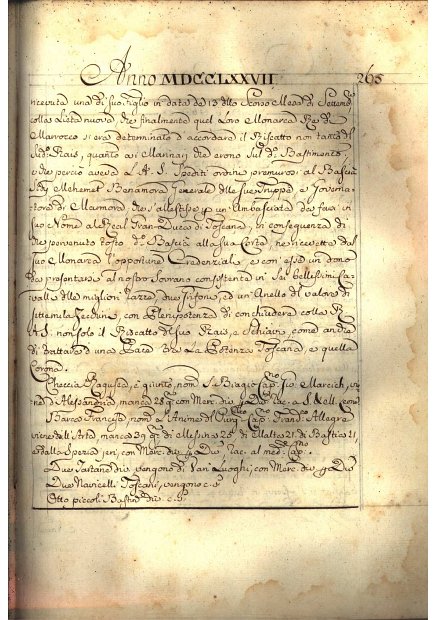 Anno MDCCLXXVII 265
ricevuta una di suo figlio in data de 13 dello scorso Mese di Settemb
colla lieta nuova, che finalmente quel Loro Monarca Re di
Marrocco si era determinato d'accordare il Riscatto non tanto del
Sud.o Rais, quanto a i Marinari che erono sul d.o Bastimento
e che perciò aveva S. A. S. spediti ordini premurosi al Bascià
Sidy Mehemet Benamora Generale delle sue Truppe, e Governa
tore di Marmora, che s'allestisse p un'Ambasciata da farsi in
suo Nome al Real Gran Duca di Toscana, in conseguenza di
che pervenuto Costo d.o Bascià alla sua Corte, ne ricevette dal
suo Monarca l'opportune Credenziali, e con esse in dono
da presentare al nostro Sovrano consistente in Sei bellissimi Ca
valli delle migliori razze, due e un Anello del valore di
Settemila Zecchini, con Plenipotenza di concludere colla R.
A. S. non solo il Riscatto del suo Rais, e Schiavi, come anche
di trattare d una Pace tra La Potenza Toscana, e quella
Corona.
Checcia Ragusea, è giunta, nom. S. Biagio Cap. Gio. Marcich,
d'Alessandria manca 28 g. con Merc. div.
Barca Francese nom. L'Anime del Purg. Cap. Fran. Allegra
viene dall'Arta, manca 39 g. di Messina 26 di Malta 21 di Bastia 21,
e dalla Spezia jeri, con Merc. div. al med. Cap.
Due Tartane che vengono di Van. Luoghi, con Merc. div.
Due Navicelli Toscani, vengono c. s.
Otto piccoli Bastim. div. c. s.